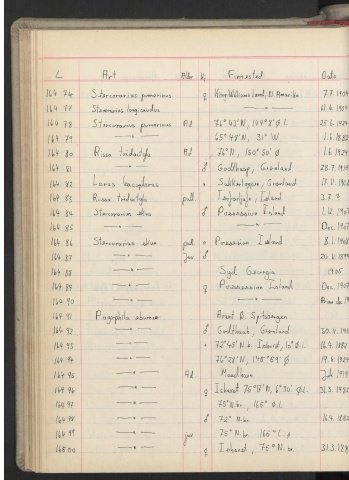 L Art Alder Kj Finnested Dato
164 74 Stercorarius pomarinus ♀ King Williams Land, N. Amerika 7.7. 1904
164 77 Stercorarius longicaudus — " —
164 78 Stercorarius pomarinus Ad 76° 43' N, 144° 8' Ø.L. 25.6. 1924
164 79 — " — 65° 48' N, 31° W. 1.6. 1882
164 80 Rissa tridactyla Ad 76° N, 150° 50' Ø 1.6. 1924
164 81 — " — ♂ Godthaap, Grønland
164 82 Larus leucopterus Sukkertoppen, Grønland
164 83 Rissa tridactyla pull. Island
164 84 Stercorarius skua ♂ Possession Island 1.12. 1907
164 85 — " — — " — Dec. 1907
164 86 Stercorarius skua pull. o Possession Island 8.1. 1908
164 87 — " — juv ♂ — " —
164 88 — " — Syd Georgia 1905
164 89 — " — ♀ Possession Island Dec. 1907
164 90 — " — — " —
164 91 Pagophila eburnea Spitsbergen
164 92 — " — ♂ Godthaab, Grønland
164 93 — " — 72° 45' N. br. Ishavet, 10° Ø.L. 16.4. 1882
164 94 — " — 19.6. 1924
164 95 — " — Ad.
164 96 — " — ♀ Ishavet 75° 17' N, 6° 30' Ø.L. 31.3. 1882
164 97 — " — 165° Ø.L.
164 98 — " — ♂ 72° N. br. 16.4. 1882
164 99 — " — juv 75° N. br.
165 00 — " — ♀ Ishavet, 75° N. br.